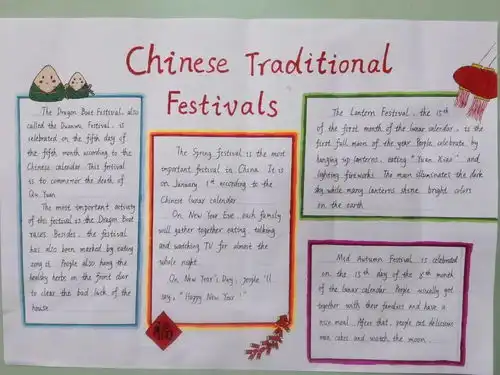 Chinese Traditional
Festivals
The Dragon Boat Festival, also
called the Duanwu Festival, is
celebrated on the fifth day of
the fifth month according to the
Chinese calendar. This festival
is to commemor the death of
Qu Yuan.
The most important activity
of this festival is the Dragon Boat
races. Besides, the festival
has also been marked by eating
zong zi. People also hang the
healthy herbs on the front door
to clear the bad luck of the
house.
The Spring festival is the most
important festival in China. It is
on January 1st according to the
Chinese lunar calendar.
On New Year Eve, each family
will gather together eating, talking
and watching TV for almost the
whole night.
On New Year's Day, people 'll
say, "Happy New Year!"
The Lantern Festival, the 15th
of the first month of the lunar calendar, is the
first full moon of the year. People celebrate by
hanging up lanterns, eating "Yuan Xiao" and
lighting fireworks. The moon illuminates the dark
sky while many lanterns shine bright colors
on the earth.
Mid Autumn Festival is celebrated
on the 15th day of the 8th month
of the lunar calendar. People usually get
together with their families and have a
nice meal. After that, people eat delicious
moon cakes and watch the moon.